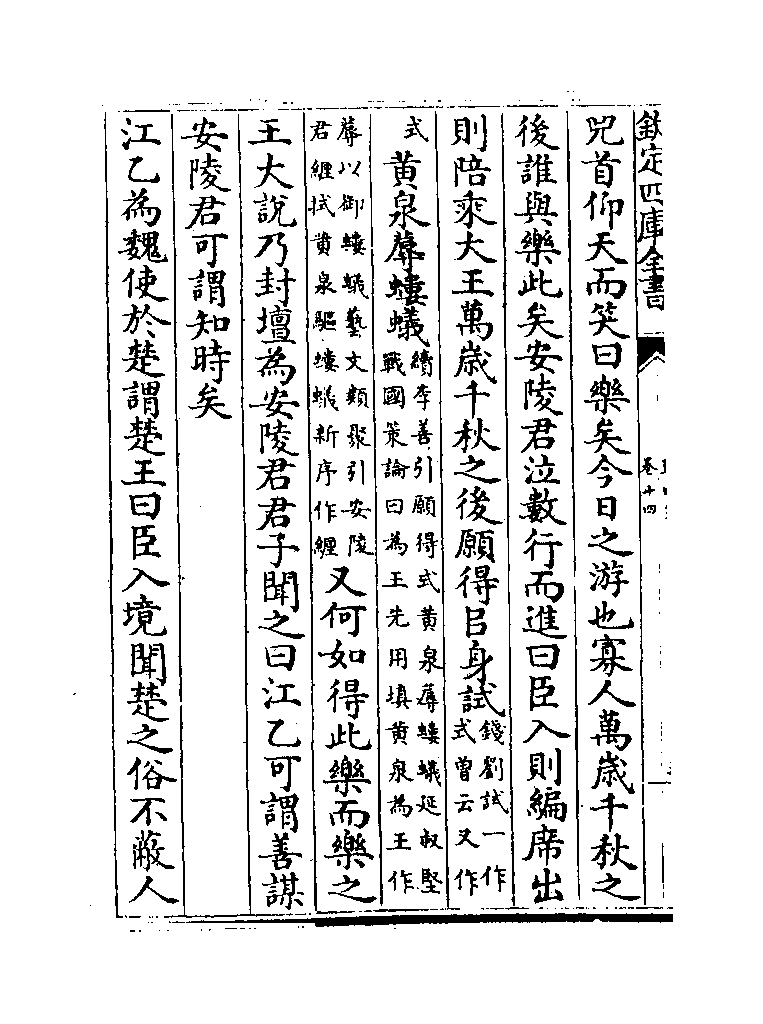 欽定四庫全書
卷十四
兕首仰天而笑曰樂矣今日之游也寡人萬歲千秋之
後誰與樂此矣安陵君泣數行而進曰臣入則編席出
則陪乘大王萬歲千秋之後願得㠯身試錢劉試一作式曾云又作
式黄泉蓐螻蟻續李善引願得式黄泉蓐螻蟻延叔堅戰國策論曰為王先用填黄泉為王作
蓐以御螻蟻藝文類聚引安陵君纒拭黄泉驅螻蟻新序作纒又何如得此樂而樂之
王大說乃封壇為安陵君君子聞之曰江乙可謂善謀
安陵君可謂知時矣
江乙為魏使於楚謂楚王曰臣入境聞楚之俗不蔽人